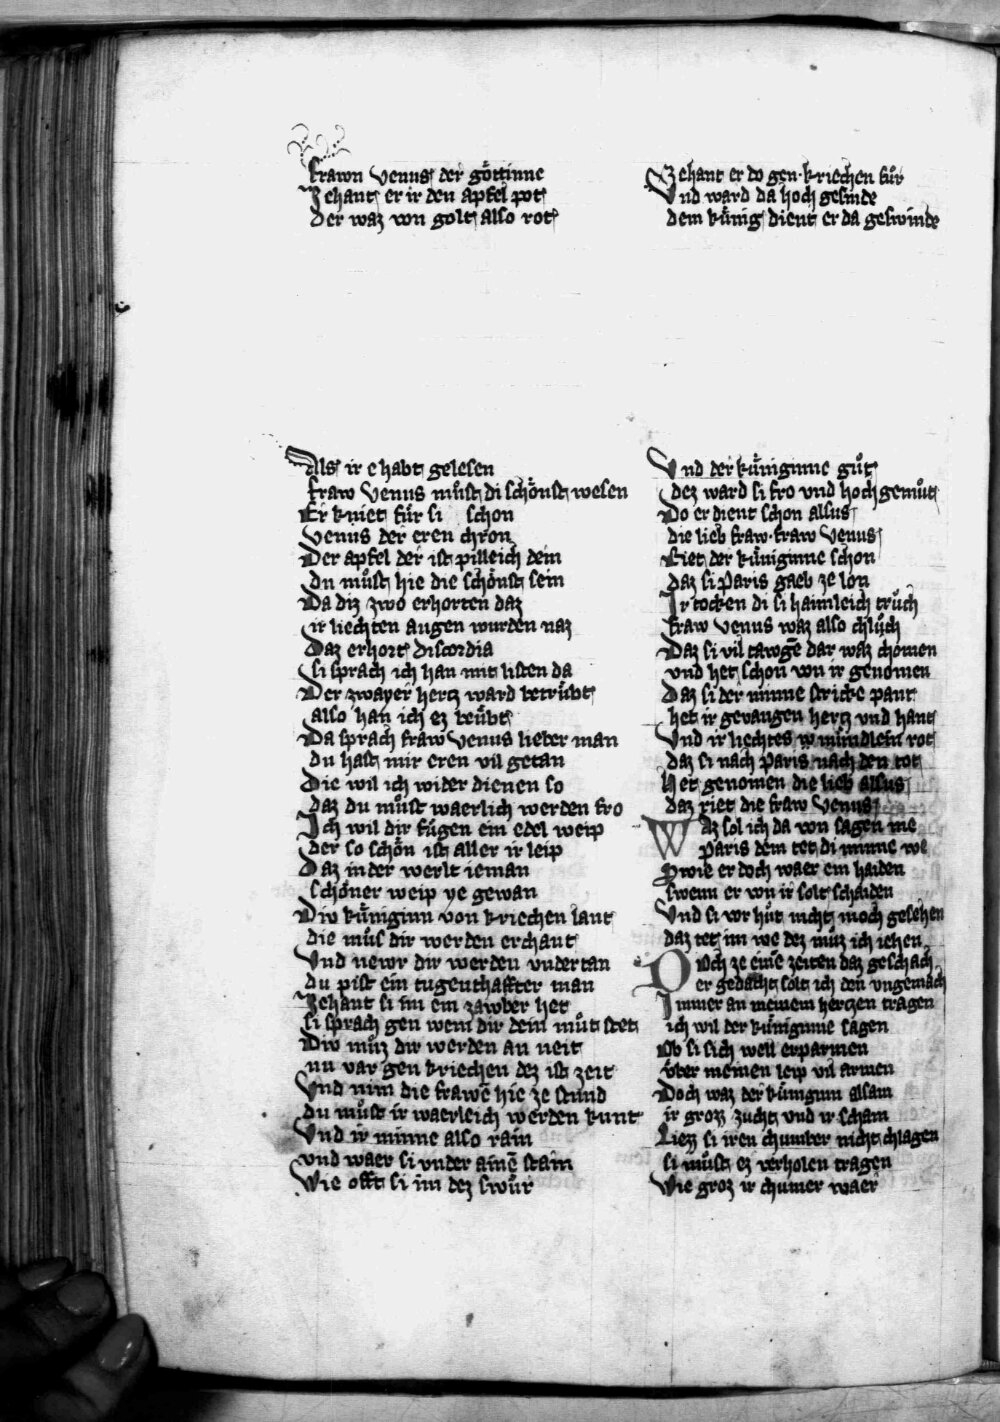 frawn Venus der göttinne
Zehant er ir den apfel pot
der waz von golt also rot
Als ir e habt gelesen
fraw Venus müst di schönst wesen
Er kniet für si schon
Venus der eren chron
Der apfel der ist pilleich dein
du müst hie die schönst sein
Da diz zwo erhorten daz
ir liechten augen wurden naz
Daz erhort discordia
si sprach ich han mit listen da
Der zwayer hertz ward betrübt
also han ich ez beübt
Da sprach fraw Venus lieber man
du hast mir eren vil getan
Die wil ich wider dienen so
daz du müst waerlich werden fro
Ich wil dir fügen ein edel weip
der so schön ist aller ir leip
Daz in der werlt ieman
schöner weip ye gewan
Diw küniginn von kriechen lant
die müs dir werden erchant
Vnd newr dir werden vndertan
du pist ein tugenthaffter man
Zehant si im ein zawber het
si sprach gen wem dir dein müt stet
Diw müz dir werden an neit
nu var gen kriechen dez ist zeit
Vnd nim die frawē hie ze stund
du müst ir waerleich werden kunt
Vnd ir minne also rain
vnd waer si vnder ainē stain
Wie offt si im dez swür
Zehant er do gen kriechen für
Vnd ward da hoch gesinde
dem künig dient er da geswinde
Vnd der küniginne güt
dez ward si fro vnd hoch gemüt
Do er dient schon alsus
die lieb fraw fraw Venus
Riet der küniginne schon
daz si Paris gaeb ze lon
Ir tocken di si haimleich trüch
fraw venus waz also chlüch
Daz si vil tawgē dar waz chomen
vnd het schon von ir genomen
Daz si der minne stricke pant
het ir gevangen hertz vnd hant
Vnd ir liechtes mündlein rot
daz si nach Paris nach den tot
Het genomen die lieb alsus
daz riet die fraw Venus
Waz sol ich da von sagen me
Paris dem tet di minne we
Swie er doch waer ein haiden
swenn er von ir solt schaiden
Vnd si vor hüt nicht moch gesehen
daz tet im we dez müz ich iehen
Doch ze eine zeiten daz geschach
er gedacht solt ich den vngemach
Immer an meinem hertzen tragen
ich wil der küniginne sagen
Ob si sich well erparmen
über meinen leip vil armen
Doch waz der küniginn alsam
ir grozz zucht vnd ir scham
Liezz si iren chumber nicht chlagen
si müst ez verholen tragen
Wie groz ir chumer waer